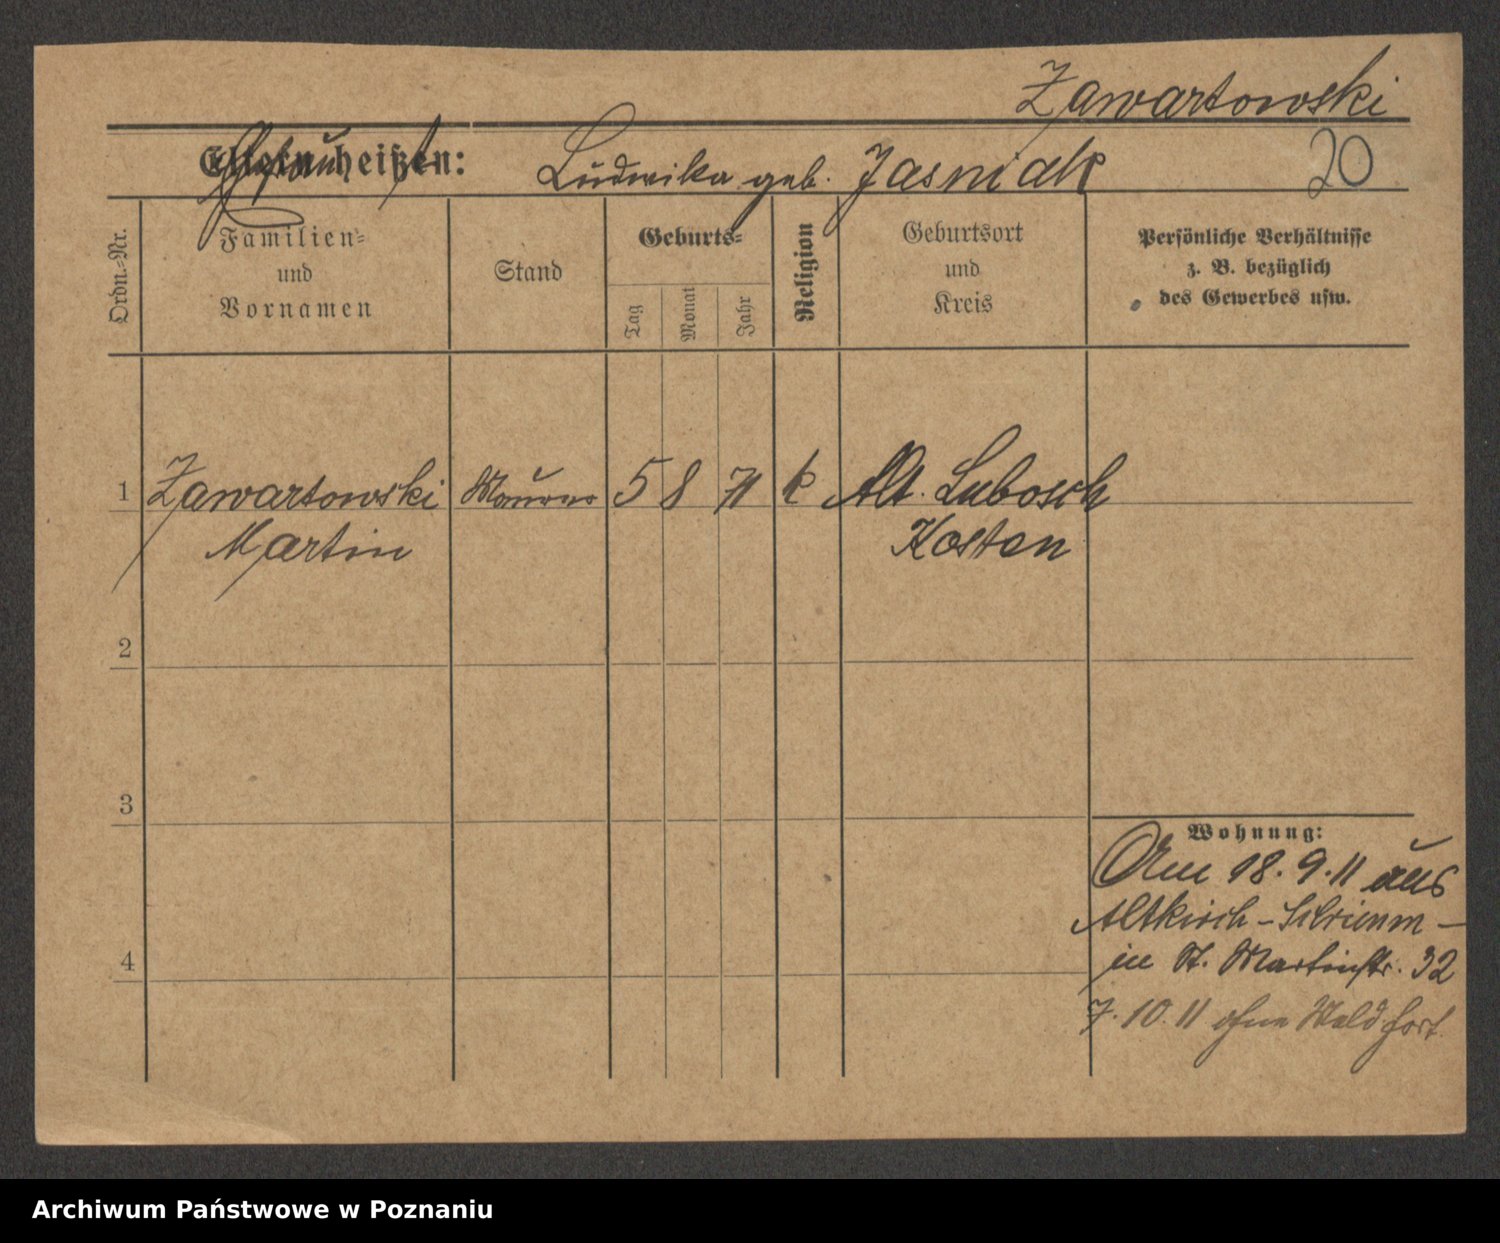 Zawartowski
Eltern heißen: Ludwika geb. Jasniak 20
Ordn.-Nr.
Familien-
und
Vornamen
Stand
Geburts-
Tag
Monat
Jahr
Religion
Geburtsort
und
Kreis
Persönliche Verhältnisse
z. B. bezüglich
des Gewerbes usw.
1 Zawartowski Maurer 5 8 71 k Alt. Lubosch
Martin Kosten
2
3
Wohnung:
Am 18.9.11 aus
Altkirch - Schrimm -
4
in St. Martinstr. 32
7.10.11 ohne Meld fort.
Archiwum Państwowe w Poznaniu